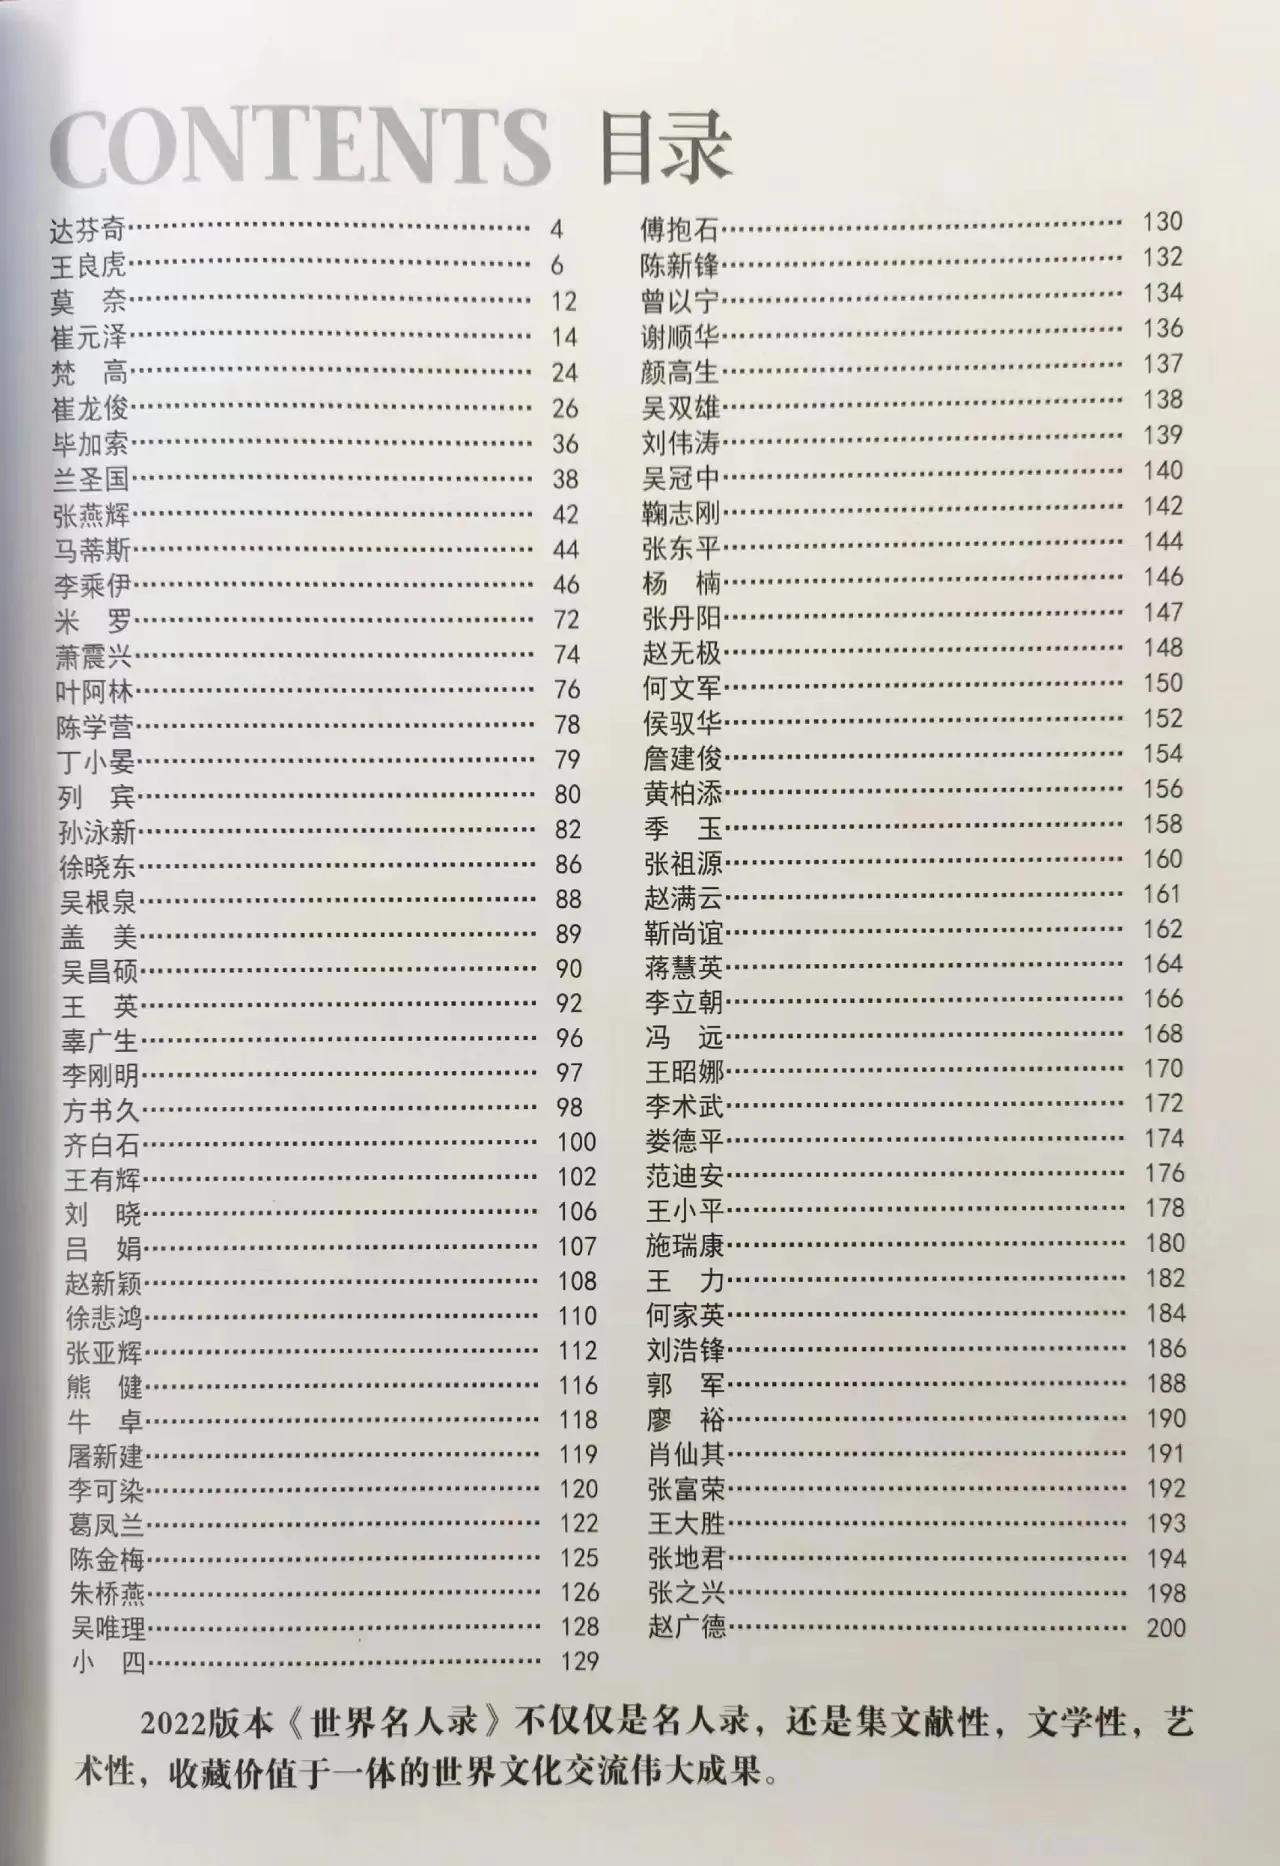 CONTENTS 目录
达芬奇 4
王良虎 6
莫 奈 12
崔元泽 14
梵 高 24
崔龙俊 26
毕加索 36
兰圣国 38
张燕辉 42
马蒂斯 44
李乘伊 46
米 罗 72
萧震兴 74
叶阿林 76
陈学营 78
丁小晏 79
列 宾 80
孙泳新 82
徐晓东 86
吴根泉 88
盖 美 89
吴昌硕 90
王 英 92
辜广生 96
李刚明 97
方书久 98
齐白石 100
王有辉 102
刘 晓 106
吕 娟 107
赵新颖 108
徐悲鸿 110
张亚辉 112
熊 健 116
牛 卓 118
屠新建 119
李可染 120
葛凤兰 122
陈金梅 125
朱桥燕 126
吴唯理 128
小 四 129
傅抱石 130
陈新锋 132
曾以宁 134
谢顺华 136
颜高生 137
吴双雄 138
刘伟涛 139
吴冠中 140
鞠志刚 142
张东平 144
杨 楠 146
张丹阳 147
赵无极 148
何文军 150
侯驭华 152
詹建俊 154
黄柏添 156
季 玉 158
张祖源 160
赵满云 161
靳尚谊 162
蒋慧英 164
李立朝 166
冯 远 168
王昭娜 170
李术武 172
娄德平 174
范迪安 176
王小平 178
施瑞康 180
王 力 182
何家英 184
刘浩锋 186
郭 军 188
廖 裕 190
肖仙其 191
张富荣 192
王大胜 193
张地君 194
张之兴 198
赵广德 200
2022版本《世界名人录》不仅仅是名人录，还是集文献性，文学性，艺
术性，收藏价值于一体的世界文化交流伟大成果。